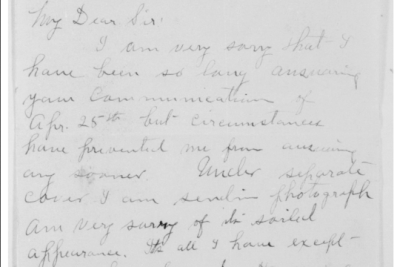 My Dear Sir:
I am very sorry that I
have been so long answering
your Communication of
Apr. 25th but circumstances
have prevented me from answering
any sooner. Under separate
cover I am sendin photograph
am very sorry of its soiled
appearance. all I have except-